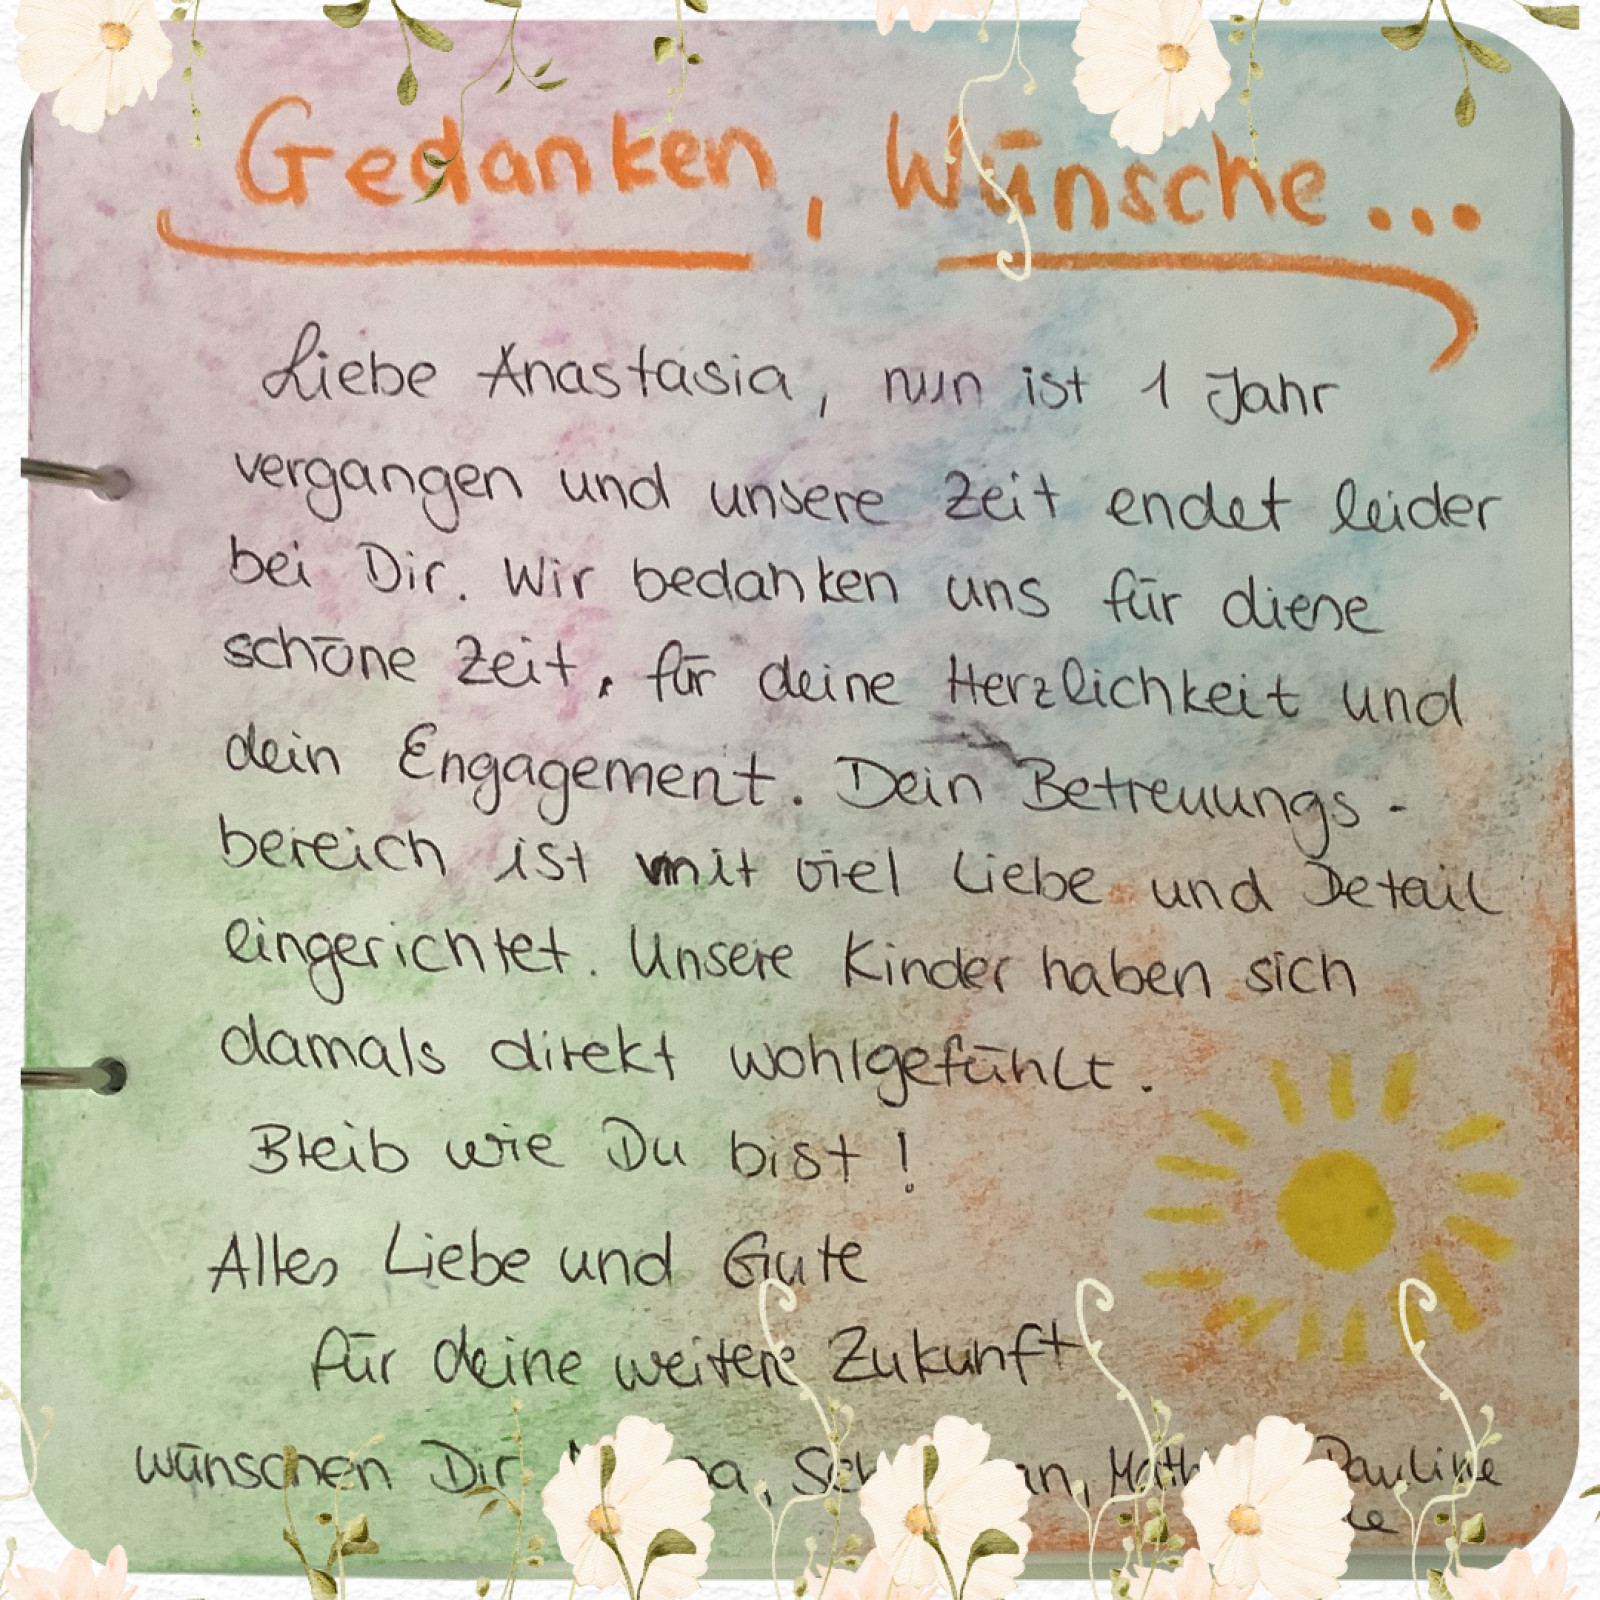 Gedanken, Wünsche...
Liebe Anastasia, nun ist 1 Jahr
vergangen und unsere Zeit endet leider
bei Dir. Wir bedanken uns für diese
schöne Zeit, für deine Herzlichkeit und
dein Engagement. Dein Betreuungs-
bereich ist mit viel Liebe und Detail
eingerichtet. Unsere Kinder haben sich
damals direkt wohlgefühlt.
Bleib wie Du bist!
Alles Liebe und Gute
für deine weitere Zukunft
wünschen Dir Pauline